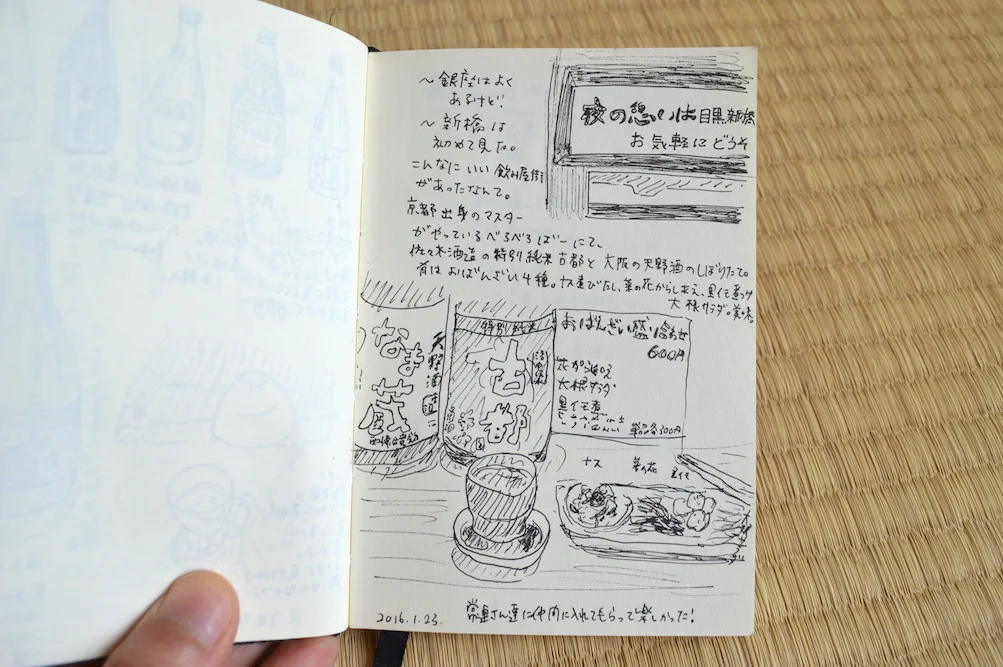 〜銀座はよく
あるけど!
〜新橋は
初めて見た。
こんなにいい飲み屋街
があったなんて。
京都出身のマスター
がやっているべろべろばーにて、
佐々木酒造の特別純米古都と大阪の天野酒のしぼりたて。
肴はおばんざい4種。ナス煮びたし、菜の花からし和え、里芋煮っ
大根サラダ。美味。
夜の憩いは目黒新橋
お気軽にどうぞ
なま
蔵
天野酒
特別純米
古都
おばんざい盛り合わせ
600円
大根サラダ
里芋煮
単品各300円
ナス
菜の花
里芋
2016.1.23.
常連さん達に仲間に入れてもらって楽しかった!